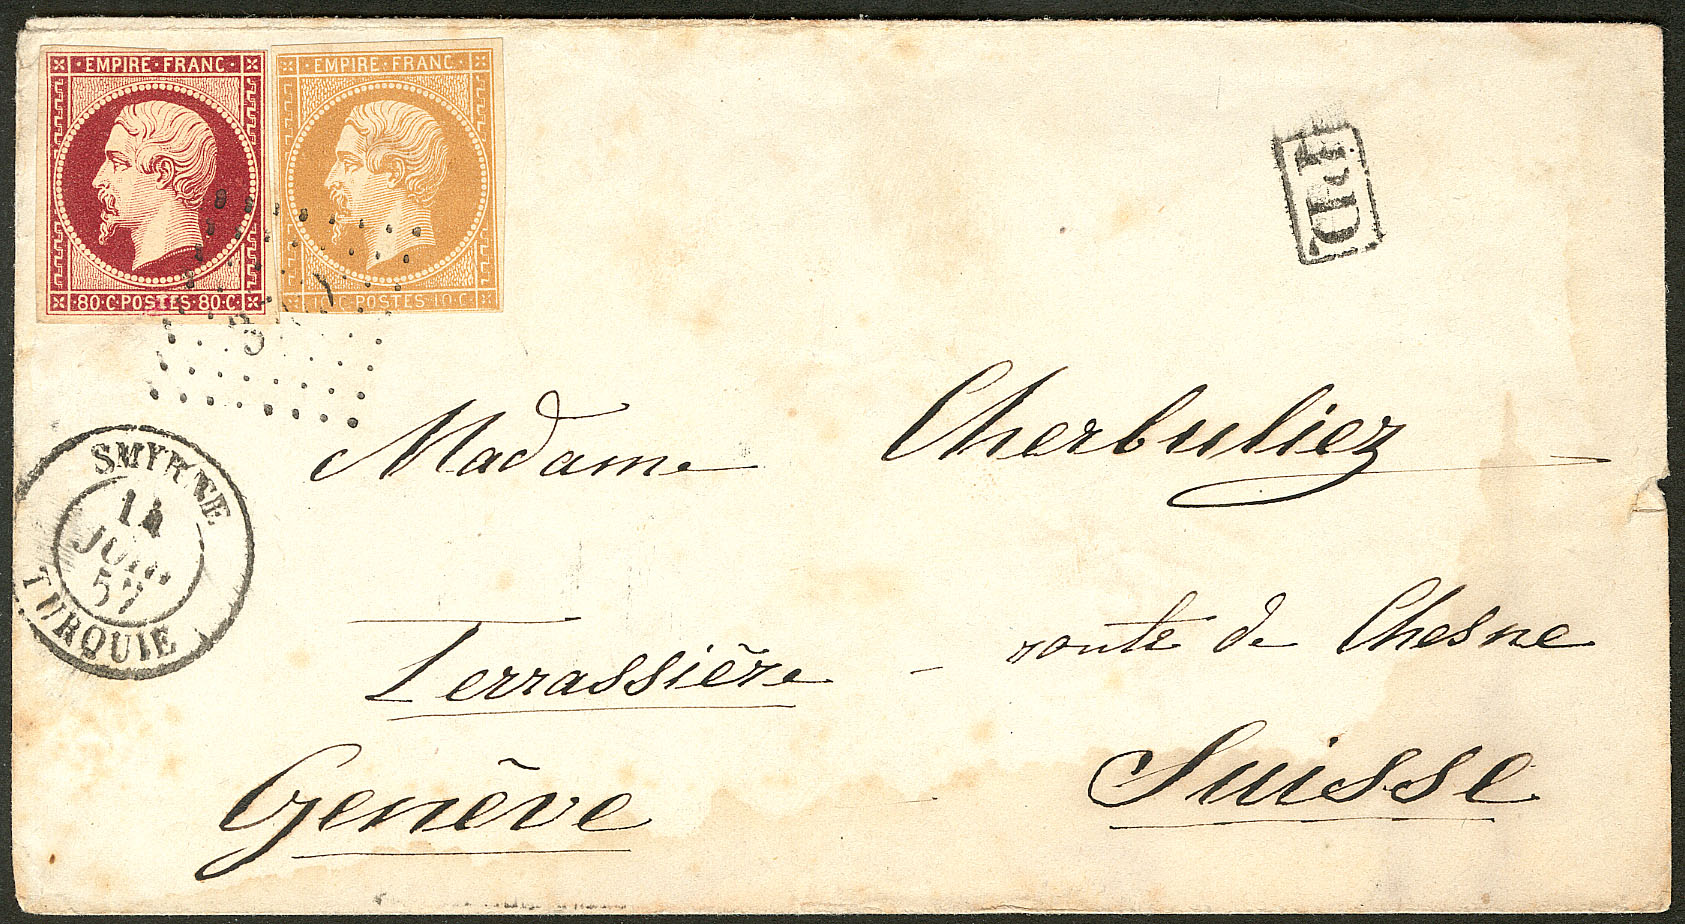 · EMPIRE · FRANC ·
80 · C · POSTES · 80 · C ·
· EMPIRE · FRANC ·
10 · C · POSTES · 10 · C ·
P.D.
3
SMYRNE
14
JUIN
57
TURQUIE
Madame Cherbuliez
Terrassière - route de Chesne
Genève Suisse